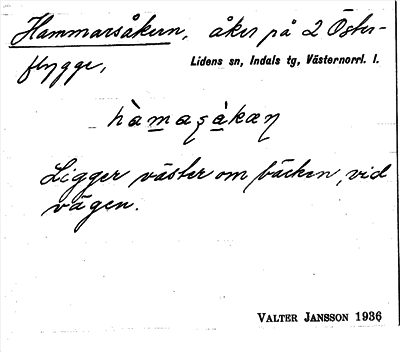 Hammarsåkern, åker på 2 Öster-
flygge,
Lidens sn, Indals tg, Västernorrl. l.
hàmaʂàkæɳ
Ligger väster om bäcken, vid
vägen.
VALTER JANSSON 1936